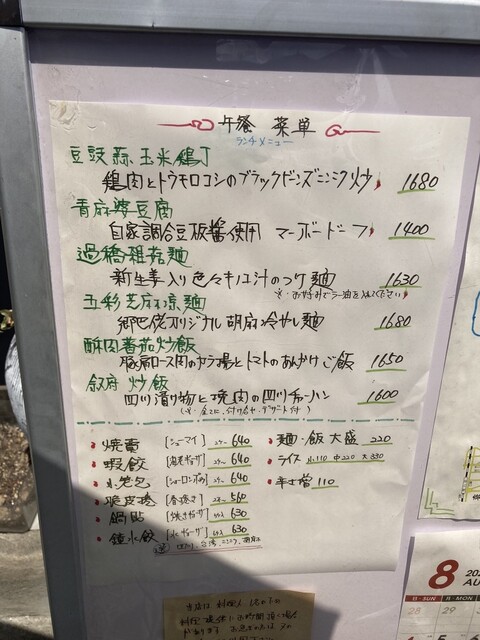 午餐 菜単
ランチメニュー
豆豉蒜玉米鶏丁
鶏肉とトウモロコシのブラックビーンズニンニク炒 1680
青麻婆豆腐
自家調合豆板醤使用 マーボードーフ 1400
過橋種菇麺
新生姜入り色々キノコ汁のつけ麺 1630
※・お好みでラー油を入れてください
五彩芝麻凉麺
郷巴佬オリジナル胡麻冷やし麺 1680
酥肉蕃茄炒飯
豚肩ロース肉のカラ揚とトマトのあんかけご飯 1650
叙府 炒飯
四川漬り物と焼肉の四川チャーハン 1600
焼賣 [シューマイ] 640
蝦餃 [海老ギョーザ] 640
小笼包 [ショーロンポウ] 640
脆皮捲 [春捲き] 560
鍋貼 [焼きギョーザ] 630
鐘水餃 [水ギョーザ] 630
麺・飯 大盛 220
ライス 小110 中220 大330
辛さ増 110
8
SUN MON
28 29